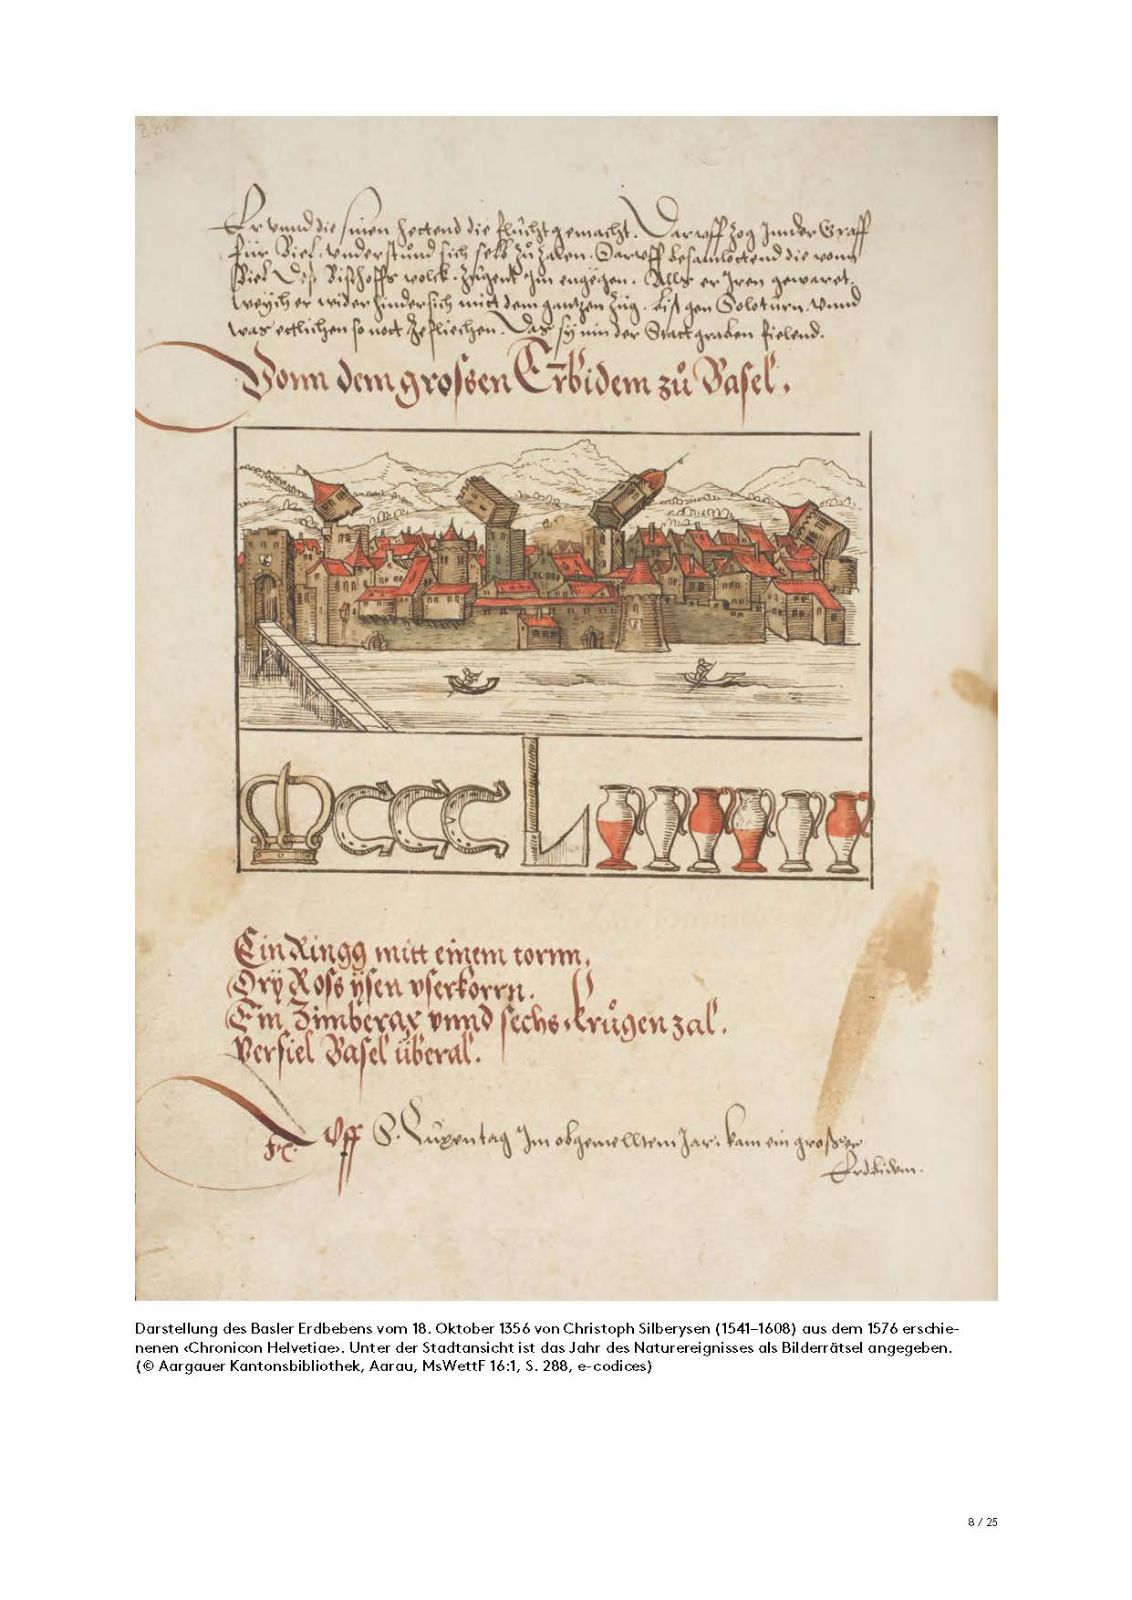 Er vnnd die sinen hettend die flucht gemacht. Daruff zog Inn der Graff
für Biel. vnderstůnd sich selb zů . Daruff besamlottend die vonn
Biel Des Bischoffs volck. zugent Im engëgen. Alls er Iren gewaret.
weÿch er wider hindersich mitt dem gantzen zug. biß gen Soloturn. vnnd
was ettlichen so nott zefliechen. Das sÿ inn der Stattgraben fielend.
Vonn dem grossen Erbidem zů Basel.
Ein Ringg mitt einem tornn,
Drÿ Ross ÿsen vserkorrn.
Ein Zimberax vnnd sechs krůgen zal.
Verfiel Basel überal.
Vff S. Luxentag Im obgemelltem Jar. kam ein grosser
Erdbidem.
Darstellung des Basler Erdbebens vom 18. Oktober 1356 von Christoph Silberysen (1541–1608) aus dem 1576 erschie-
nenen ‹Chronicon Helvetiae›. Unter der Stadtansicht ist das Jahr des Naturereignisses als Bilderrätsel angegeben.
(© Aargauer Kantonsbibliothek, Aarau, MsWettF 16:1, S. 288, e-codices)
8 / 25